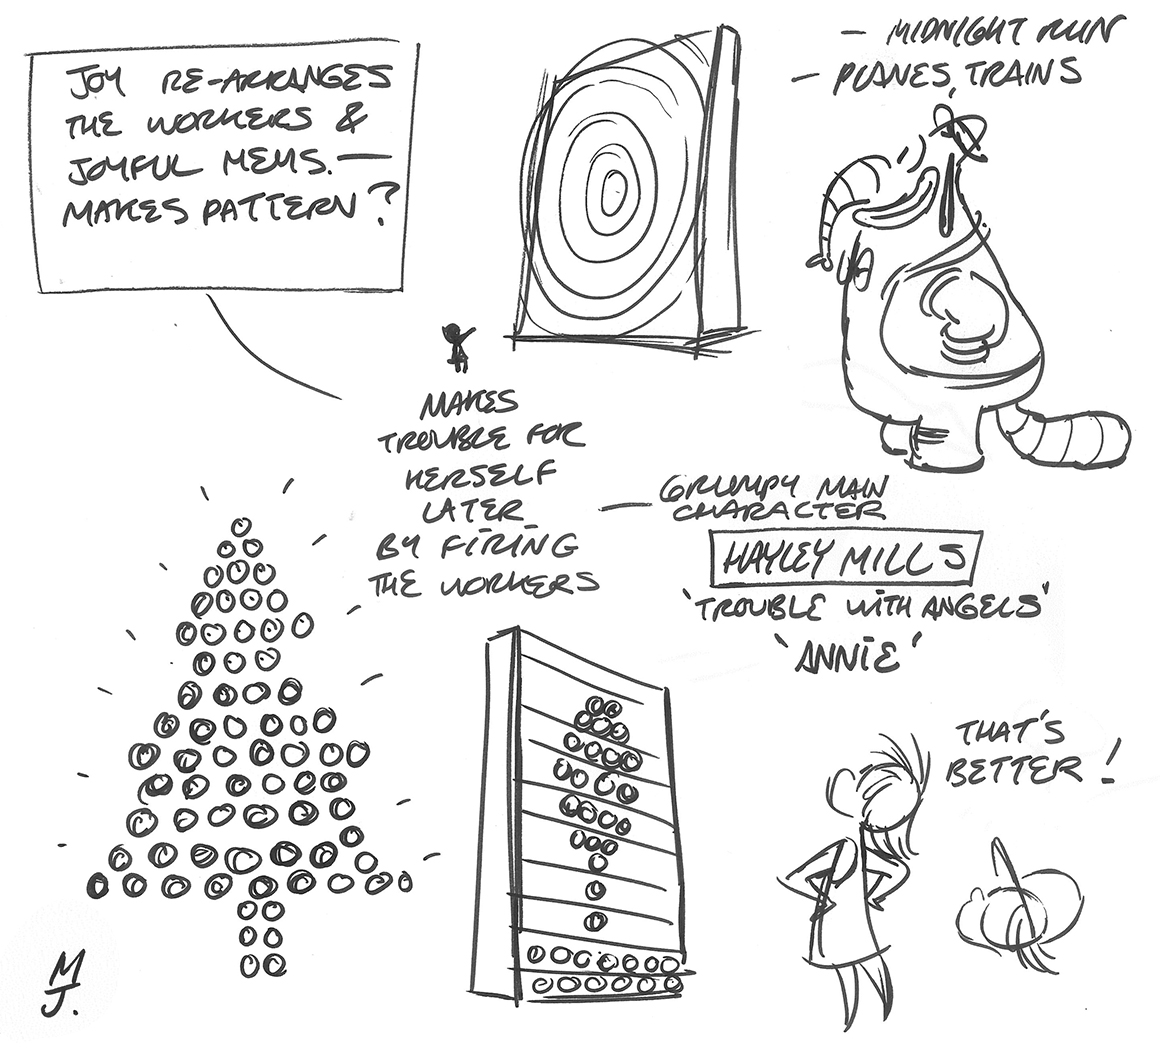 JOY RE-ARRANGES
THE WORKERS &
JOYFUL MEMS. —
MAKES PATTERN?
— MIDNIGHT RUN
— PLANES, TRAINS
MAKES
TROUBLE FOR
HERSELF
LATER
BY FIRING
THE WORKERS
— GRUMPY MAIN
CHARACTER
HAYLEY MILLS
'TROUBLE WITH ANGELS'
'ANNIE'
THAT'S
BETTER!
MJ.